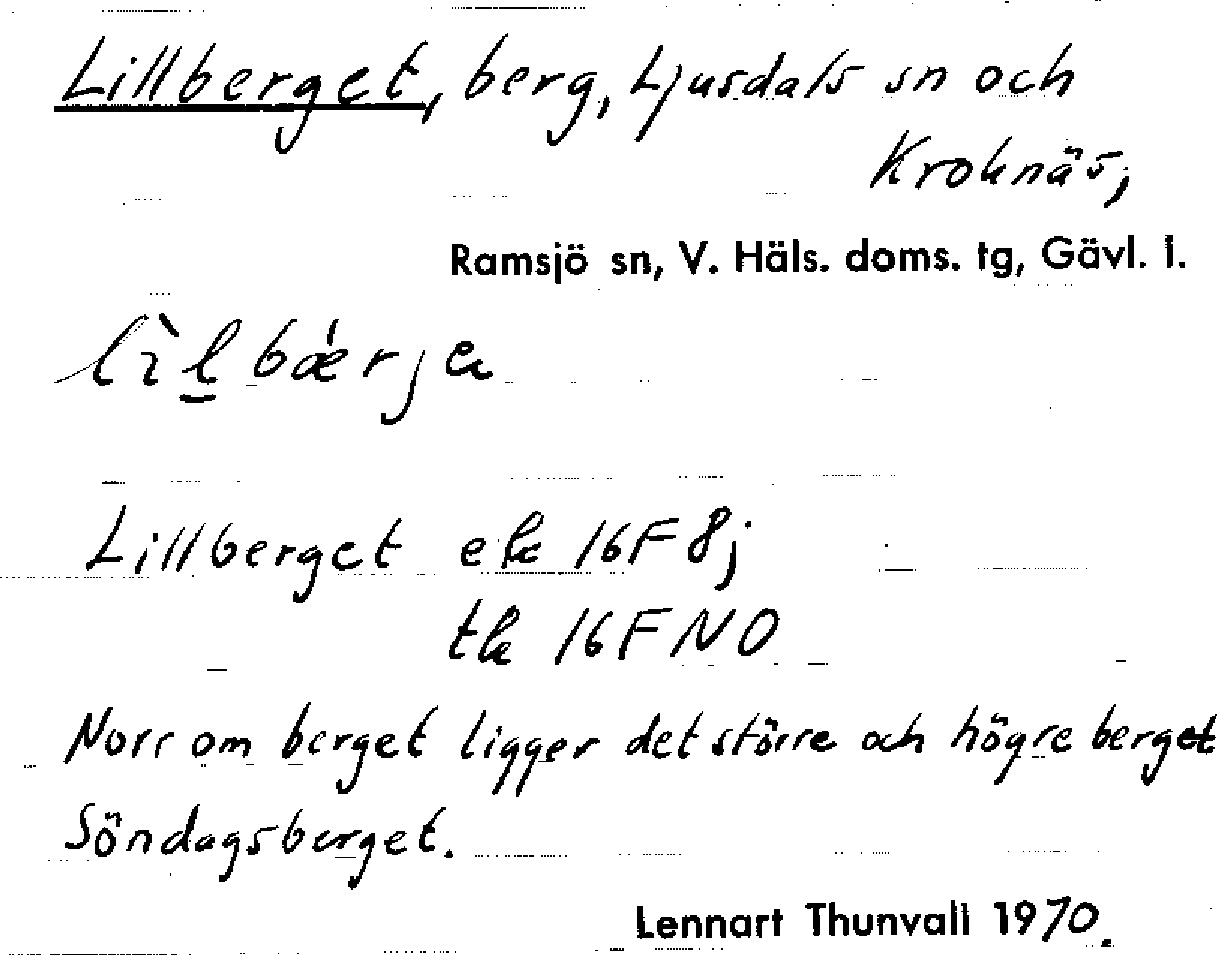 Lillberget, berg, Ljusdals sn och
Kroknäs,
Ramsjö sn, V. Häls. doms. tg, Gävl. l.
lìl̲bǽrja
Lillberget ek 16F 8j
tk 16F NO
Norr om berget ligger det större och högre berget
Söndagsberget.
Lennart Thunvall 1970.